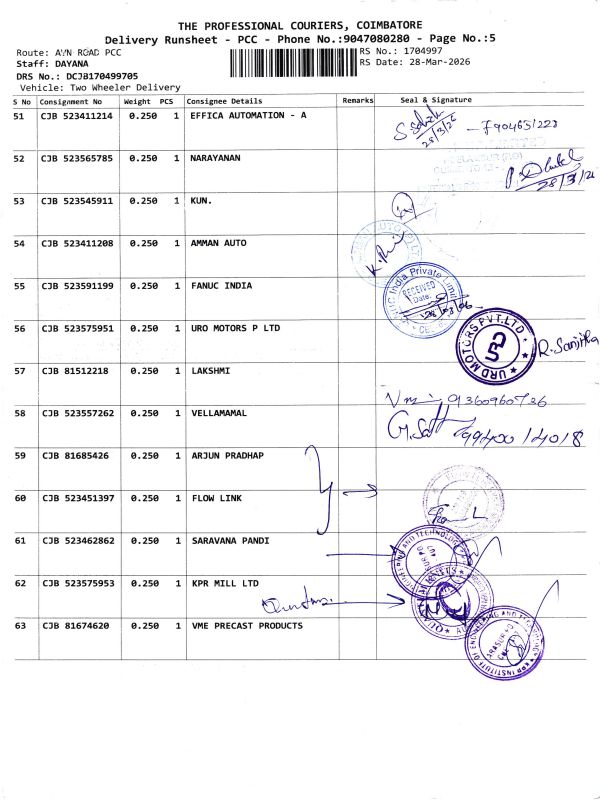 THE PROFESSIONAL COURIERS, COIMBATORE
Delivery Runsheet - PCC - Phone No.:9047080280 - Page No.:5
Route: AVN ROAD PCC
RS No.: 1704997
Staff: DAYANA
RS Date: 28-Mar-2026
DRS No.: DCJB170499705
Vehicle: Two Wheeler Delivery
S No Consignment No Weight PCS Consignee Details Remarks Seal & Signature
51 CJB 523411214 0.250 1 EFFICA AUTOMATION - A
28/3/26
52 CJB 523565785 0.250 1 NARAYANAN
28/3/26
53 CJB 523545911 0.250 1 KUN.
54 CJB 523411208 0.250 1 AMMAN AUTO
55 CJB 523591199 0.250 1 FANUC INDIA
India Private Limi
RECEIVED
Date:
56 CJB 523575951 0.250 1 URO MOTORS P LTD
URO MOTORS PVT.LTD
R. Sanjitha
57 CJB 81512218 0.250 1 LAKSHMI
9360960736
58 CJB 523557262 0.250 1 VELLAMAMAL
9940014018
59 CJB 81685426 0.250 1 ARJUN PRADHAP
60 CJB 523451397 0.250 1 FLOW LINK
61 CJB 523462862 0.250 1 SARAVANA PANDI
62 CJB 523575953 0.250 1 KPR MILL LTD
63 CJB 81674620 0.250 1 VME PRECAST PRODUCTS
KPR INSTITUTE OF ENGINEERING AND TECHNOLOGY